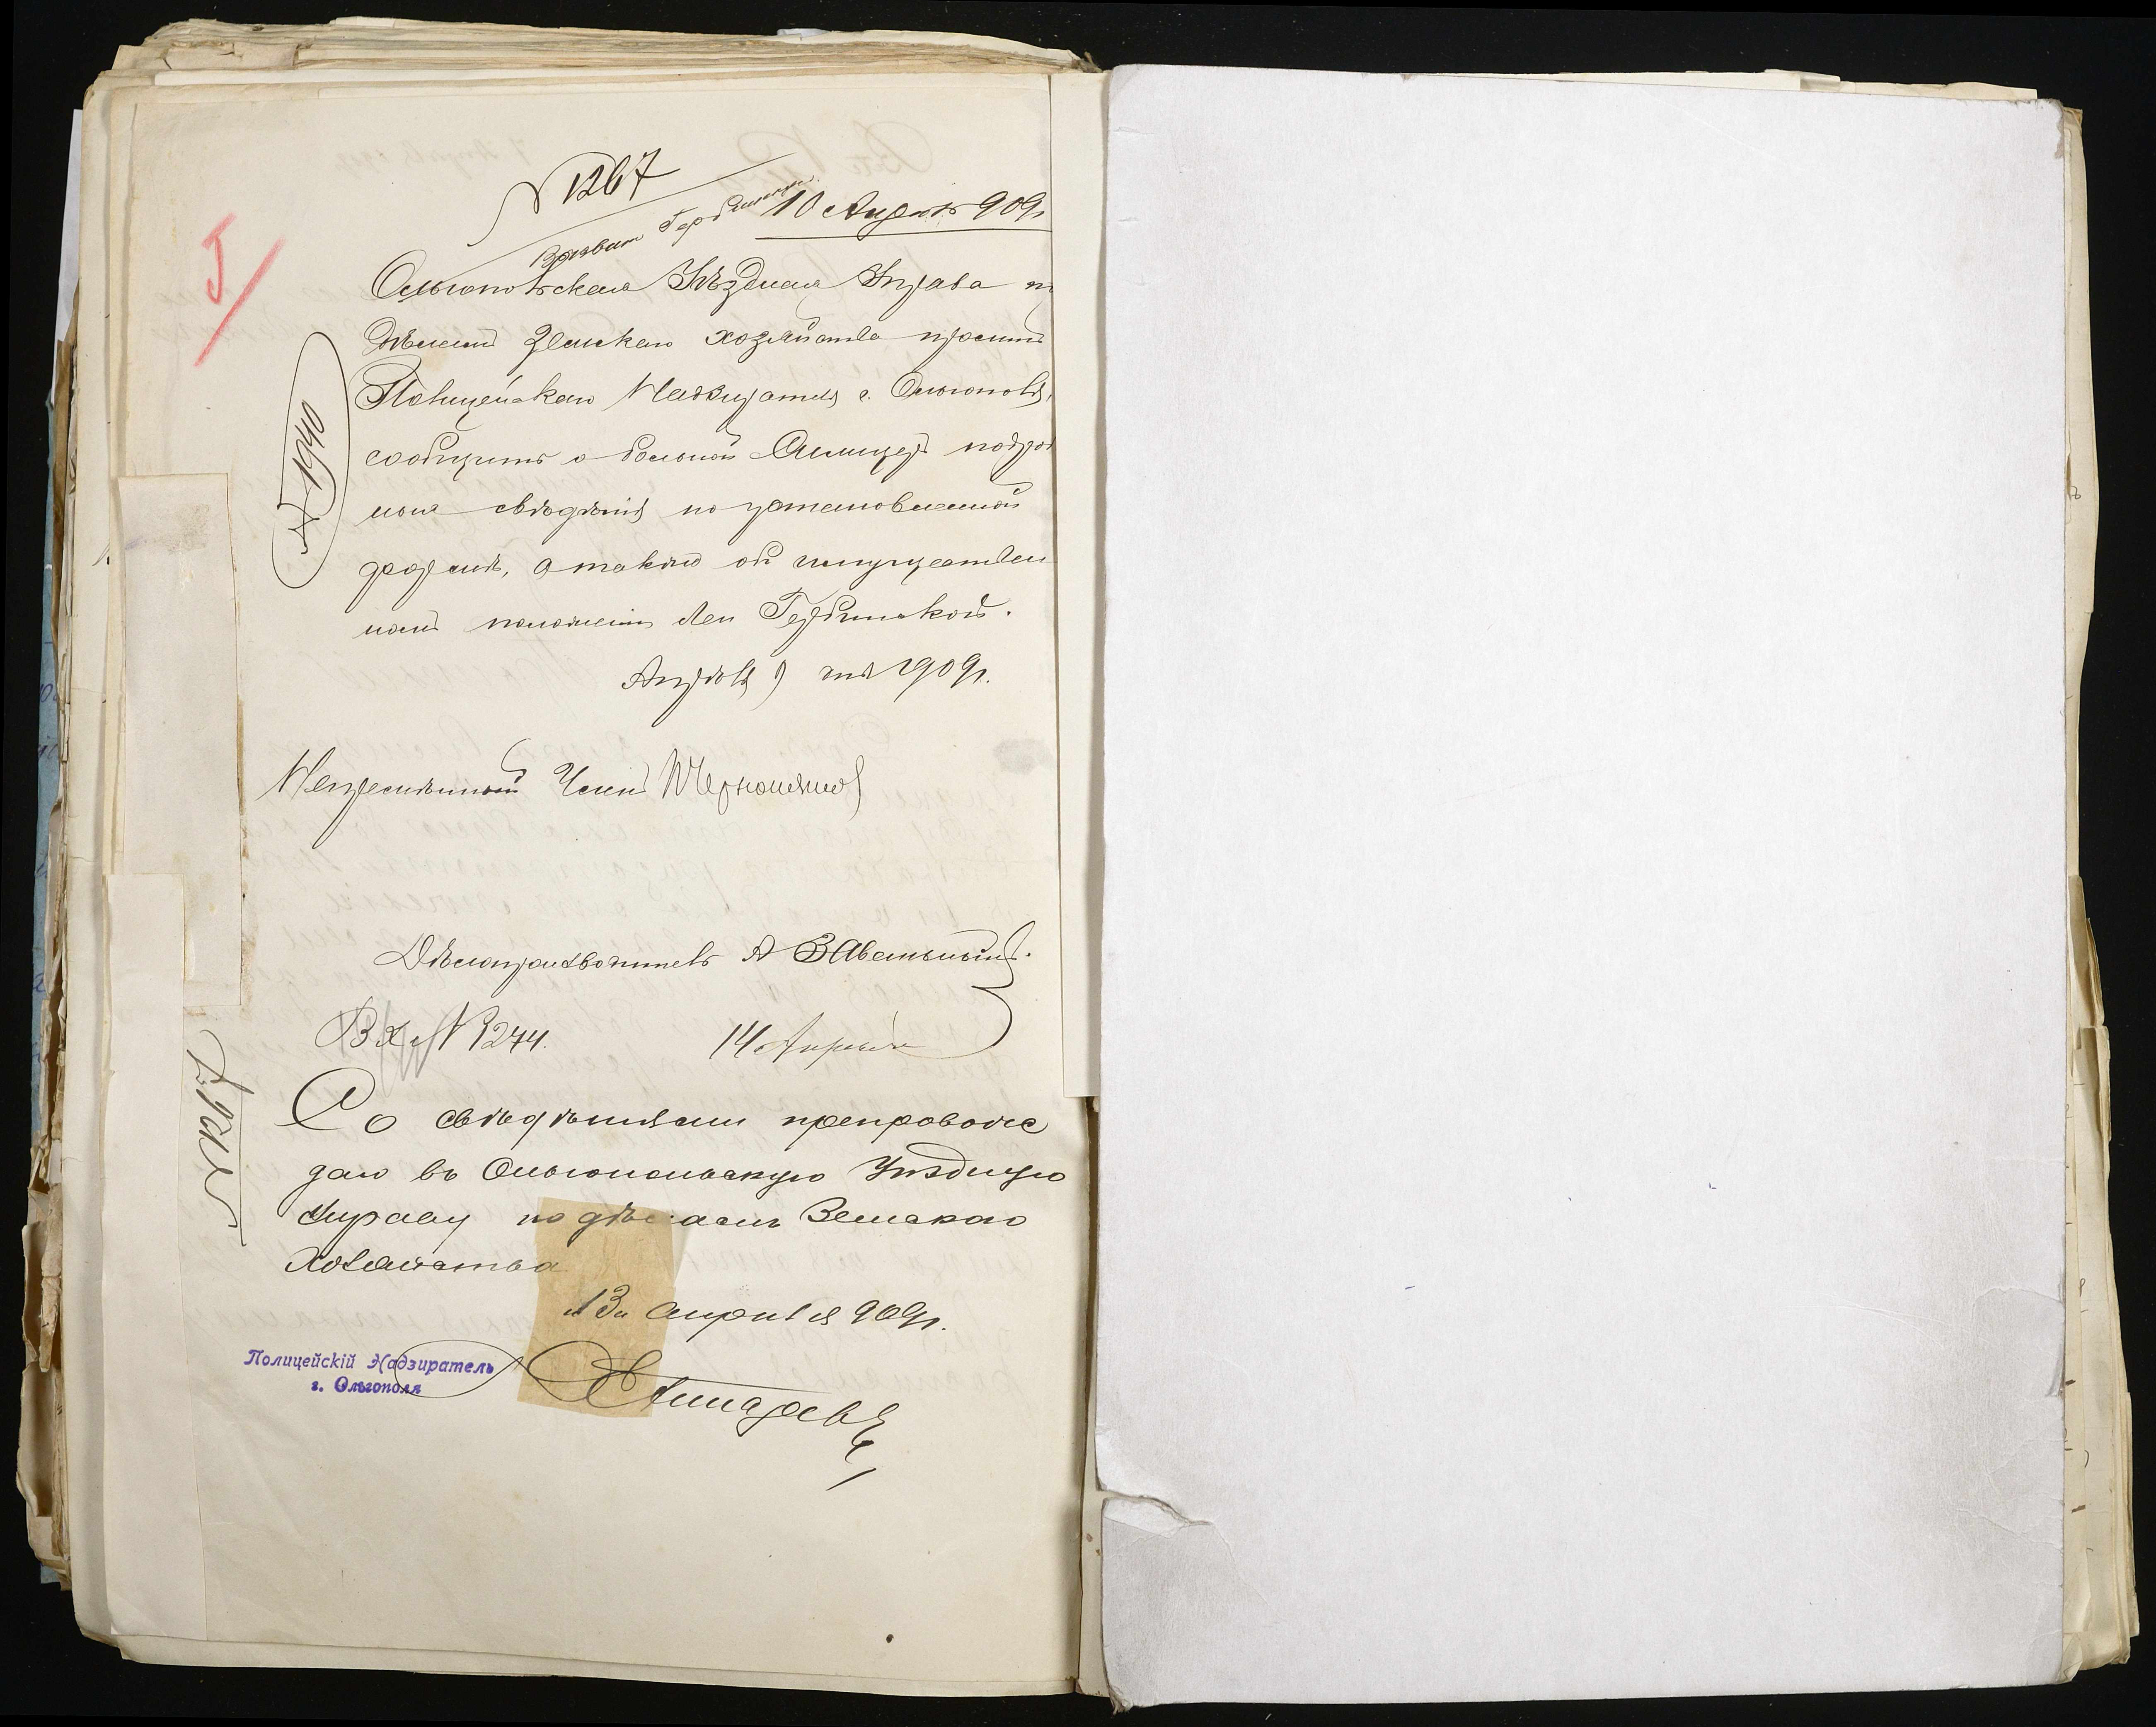 № 1267
10 Апрѣля 909 г.
Ольгопольская Уѣздная Управа по
дѣламъ Земскаго хозяйства проситъ
Полицейскаго Надзирателя г. Ольгополя,
сообщить о больной подроб
ныя свѣдѣнія по установленной
формѣ, а также объ имуществен
номъ положеніи Леи Гербинской.
Апрѣля 9 дня 1909 г.
№ 1940
Непремѣнный Членъ
Дѣлопроизводитель
Вх. № 1244. 14 Апрѣля
Со свѣдѣніями препровож
даю въ Ольгопольскую Уѣздную
Управу по дѣламъ Земскаго
Хозяйства
"13" апрѣля 909 г.
Полицейскій Надзиратель
г. Ольгополя